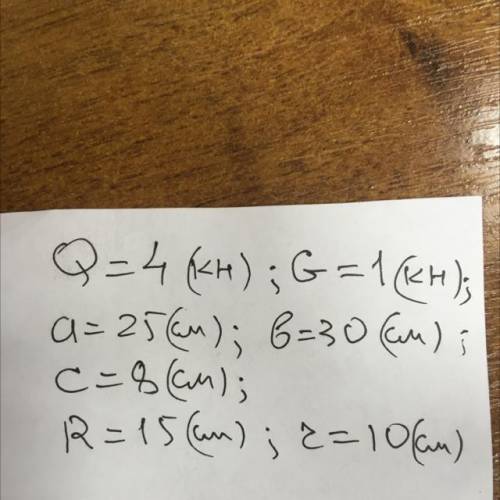 Q=4(кн); G=1(кн);
a=25(см); в=30(см);
c=8(см);
R=15(см); r=10(см)